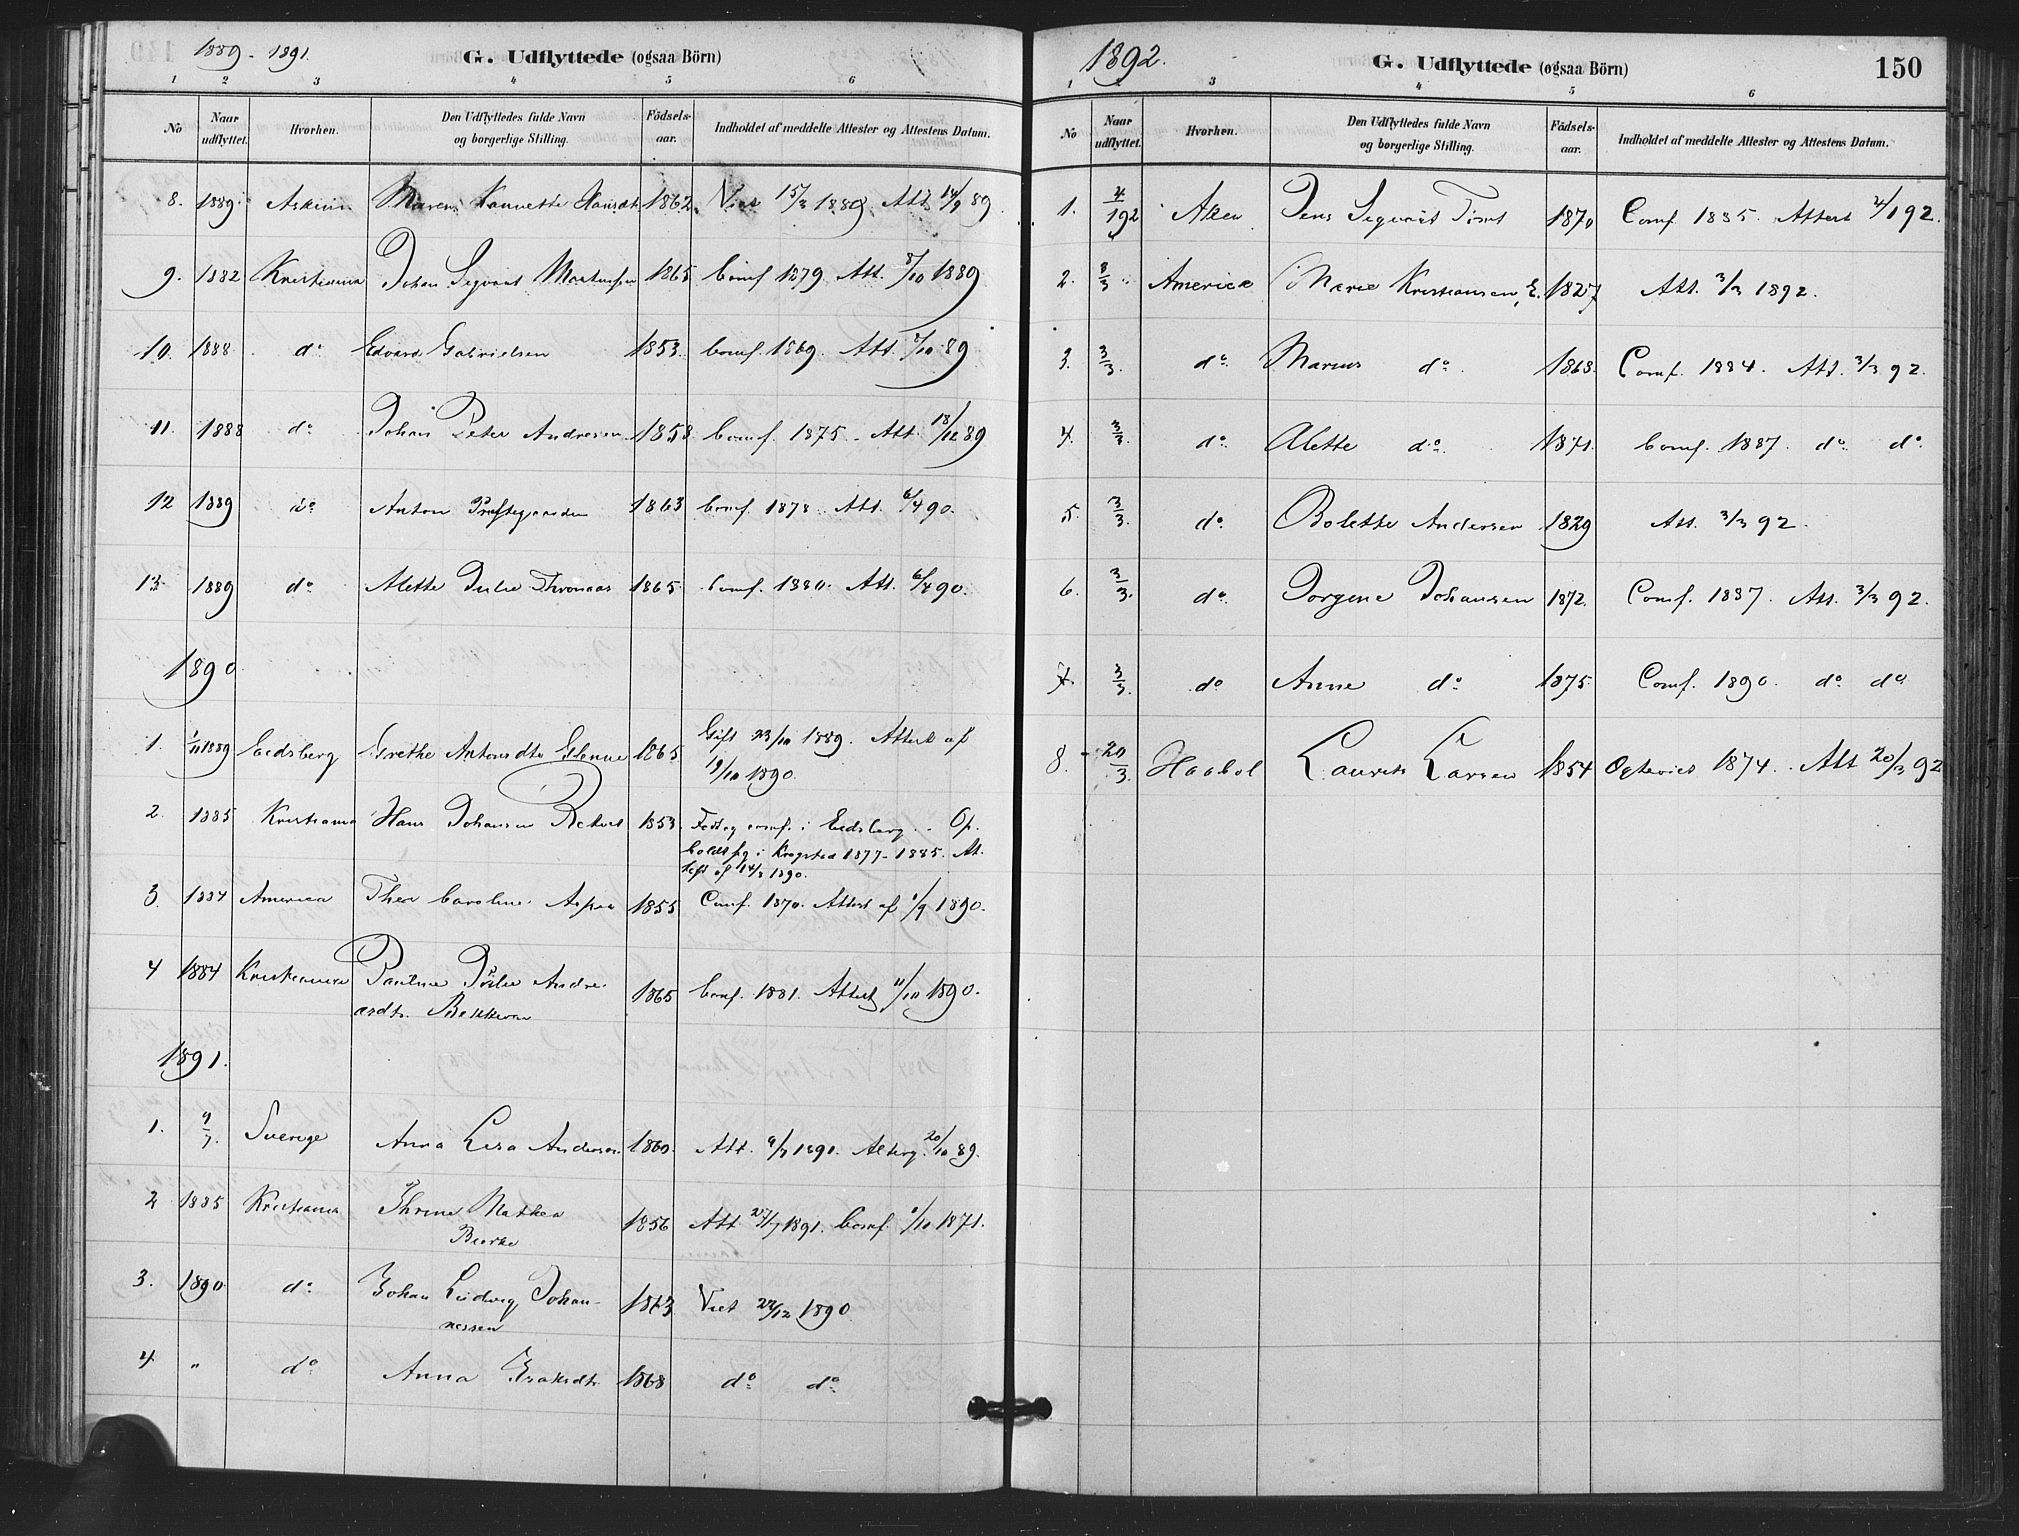 1889 - 1891.
G. Udflyttede (ogsaa Börn)
1 2 3 4 5 6
No
Naar udflyttet.
Hvorhen.
Den Udflyttedes fulde Navn og borgerlige Stilling.
Födsels-aar.
Indholdet af meddelte Attester og Attestens Datum.
8. 1889 Askim Maren 1862 Viet 15/3 1889. Att. 14/9 89.
9. 1882 Kristiania Johan Sigvart 1865 Comf. 1879 Att. 8/10 1889
10. 1888 do Edvard Gabrielsen 1853. Comf. 1869. Att. 89.
11. 1888 do Johan Peter Andresen 1858 Comf. 1875. Att. 18/12 89
12 1889 do Anton Præstegaarden 1863 Comf. 1878. Att. 6/4 90.
13. 1889 do Alette Julie 1865 Comf. 1880. Att. 6/4 90.
1890
1. 1/11 1889 Eidsberg Grethe Antonsdtr Glenne 1865 Gift 23/10 1889. Attest af
19/10 1890.
2. 1885 Kristiania Hans Johansen 1853. Född og comf. i Eidsberg. Op-
holdt sig i Krogstad 1877-1885. At-
test af 14/8 1890.
3. 1884 America Thea Caroline 1855 Comf. 1870. Attest af 1/9 1890.
4 1884 Kristiania Pauline Julie Andre-
asdtr. Bekkevar 1865 Comf. 1881. Attest 11/10 1890.
1891.
1. 9/7. Sverige Anna Lisa Anderson 1860. Att. 9/7 1891. 20/10 89.
2 1885 Kristiania Thrine Mathea
Bierke 1856 Att 27/7 1891. Comf. 1/10 1871.
3. 1890 do Johan Ludvig Johan-
nessen 1863 Viet 28/12 1890
4. " do Anna Isaksdtr. 1868 do do
1892.
G. Udflyttede (ogsaa Börn)
150
1 3 4 5 6
No
Naar udflyttet.
Hvorhen.
Den Udflyttedes fulde Navn og borgerlige Stilling.
Födsels-aar.
Indholdet af meddelte Attester og Attestens Datum.
1. 4/1 92 Jens Sigvart 1870 Comf. 1885. Attest 4/1 92.
2. 3/3 America Marie Kristiansen, E. 1827 Att. 3/3 1892.
3. 3/3. do Marius do 1868. Comf. 1884. Att. 3/3 92.
4. 3/3. do Alette do 1871. Comf. 1887. do do
5. 3/3. do Bolette Andersen 1829 Att. 3/3 92.
6. 3/3. do Jorgine Johansen 1872. Comf. 1887. Att. 3/3 92.
7. 3/3. do Anne do 1875. Comf. 1890. do do
8. 20/3. Haabøl Laurits Larsen 1854 Ogteviet 1874. Att 20/3 92